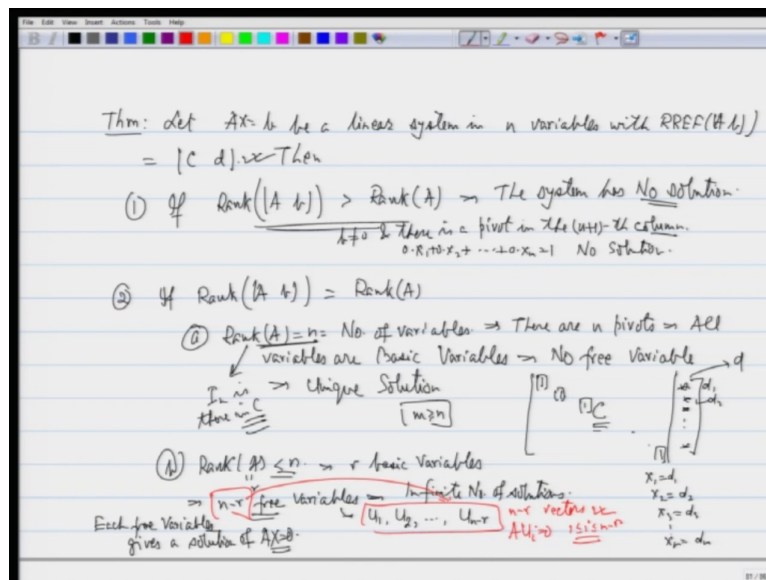 File Edit View Insert Actions Tools Help
Thm: Let AX=b be a linear system in n variables with RREF([A b])
= [C d]. Then
① If Rank([A b]) > Rank(A) ⇒ The system has No solution.
b≠0 & there is a pivot in the (n+1)-th column.
0·x₁+0·x₂+ ⋯ +0·xₙ=1 No Solution.
② If Rank([A b]) = Rank(A)
ⓐ Rank(A)=n= No. of variables ⇒ There are n pivots ⇒ All
variables are Basic Variables ⇒ No free Variable
Iₙ is there in C
⇒ Unique Solution
m≥n
C
d
d₁
d₂
x₁=d₁
x₂=d₂
x₃=d₃
xₙ=dₙ
ⓑ Rank(A) ≤ n ⇒ r basic Variables
r
⇒ n-r free Variables ⇒ Infinite No. of solutions.
Each free Variable gives a solution of AX=0.
U₁, U₂, ..., Uₙ₋ᵣ
n-r vectors
AUᵢ=0 1≤i≤n-r